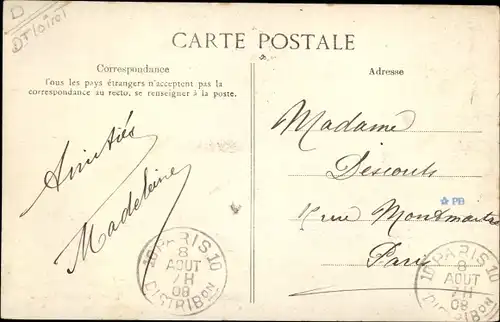 CARTE POSTALE
Correspondance
Tous les pays étrangers n'acceptent pas la
correspondance au recto, se renseigner à la poste.
Adresse
Amitiés
Madeleine
Madame
Descouts
rue Montmartre
Paris
PB
PARIS 10
8
AOUT
7 H
08
DISTRIBON
10 PARIS 10
8
AOUT
7 H
08
DISTRIBON